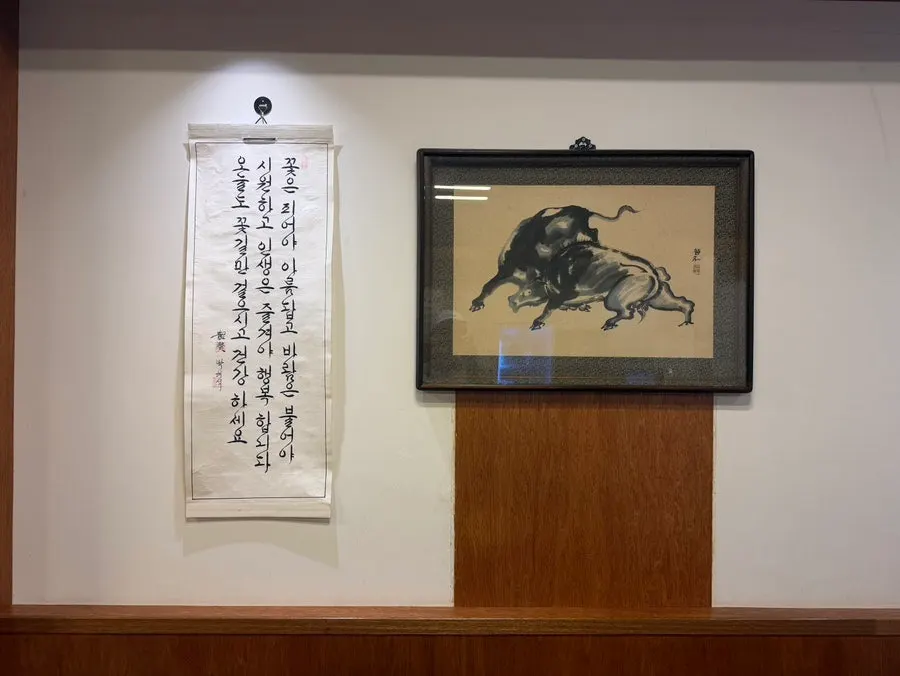 꽃은 피어야 아름답고 바람은 불어야
시원하고 인생은 즐겨야 행복 합니다
오늘도 꽃길만 걸으시고 건강 하세요